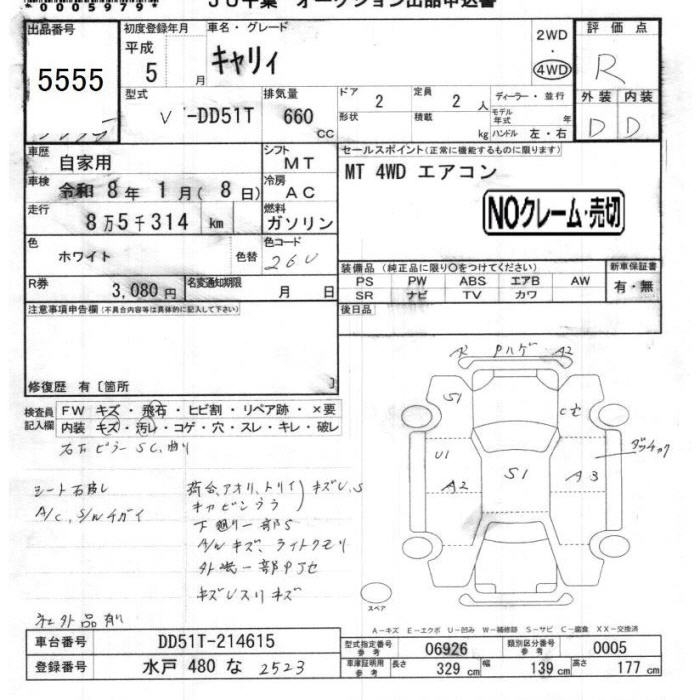 00005979*
JU千葉 オークション出品申込書
出品番号
5555
初度登録年月
平成
5 月
車名・グレード
キャリィ
2WD
・
4WD
評価点
R
型式
V -DD51T
排気量
660 cc
ドア
2
定員
2 人
形状
積載
kg
ディーラー・並行
モデル年式 年
ハンドル 左・右
外装 内装
D D
車歴
自家用
シフト
MT
セールスポイント(正常に機能するものに限ります)
MT 4WD エアコン
車検
令和 8年 1月( 8日)
冷房
AC
NOクレーム・売切
走行
8万5千314 km
燃料
ガソリン
色
ホワイト
色替
色コード
26U
装備品(純正品に限り○をつけてください)
新車保証書
PS PW ABS エアB AW
有・無
SR ナビ TV カワ
R券
3,080円
名変通知期限
月 日
後日品
注意事項申告欄(不具合内容等は具体的に記入して下さい)
修復歴 有〔箇所 〕
検査員記入欄
FW キズ・飛石・ヒビ割・リペア跡・×要
内装 キズ・汚レ・コゲ・穴・スレ・キレ・破レ
右右ピラーSC、曲り
シート右破レ
A/C、S/Wチガイ
荷台、アオリ、トリイ
キャビンウラ
キズU、S
下廻り一部S
A/Wキズ、ライトクモリ
キズUスリキズ
社外品有り
Pハゲ
A2
S1
U1
A2
S1
A3
スペア
A-キズ E-エクボ U-凹み W-補修跡 S-サビ C-腐食 XX-交換済
車台番号
DD51T-214615
型式指定番号 参考
06926
類別区分番号 参考
0005
登録番号
水戸 480 な 2523
車庫証明用 参考
長さ
329 cm
幅
139 cm
高さ
177 cm